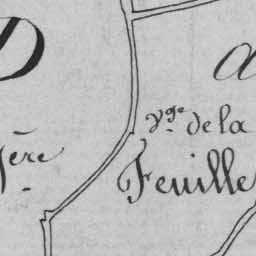 D
a
vge. de la
Feuille